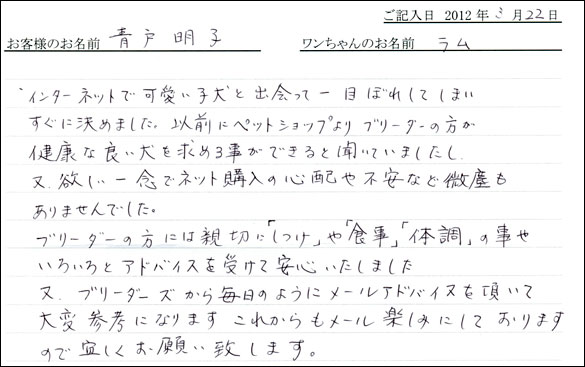 ご記入日 2012 年 3 月 22 日
お客様のお名前 青戸 明子 ワンちゃんのお名前 ラム
インターネットで可愛い子犬と出会って一目ぼれしてしまい
すぐに決めました。以前にペットショップよりブリーダーの方が
健康な良い犬を求める事ができると聞いていましたし、
又、欲しい一念でネット購入の心配や不安など微塵も
ありませんでした。
ブリーダーの方には親切に「しつけ」や「食事」「体調」の事や
いろいろとアドバイスを受けて安心いたしました
又、ブリーダーズから毎日のようにメールアドバイスを頂いて
大変参考になります これからもメール楽しみにしております
ので宜しくお願い致します。